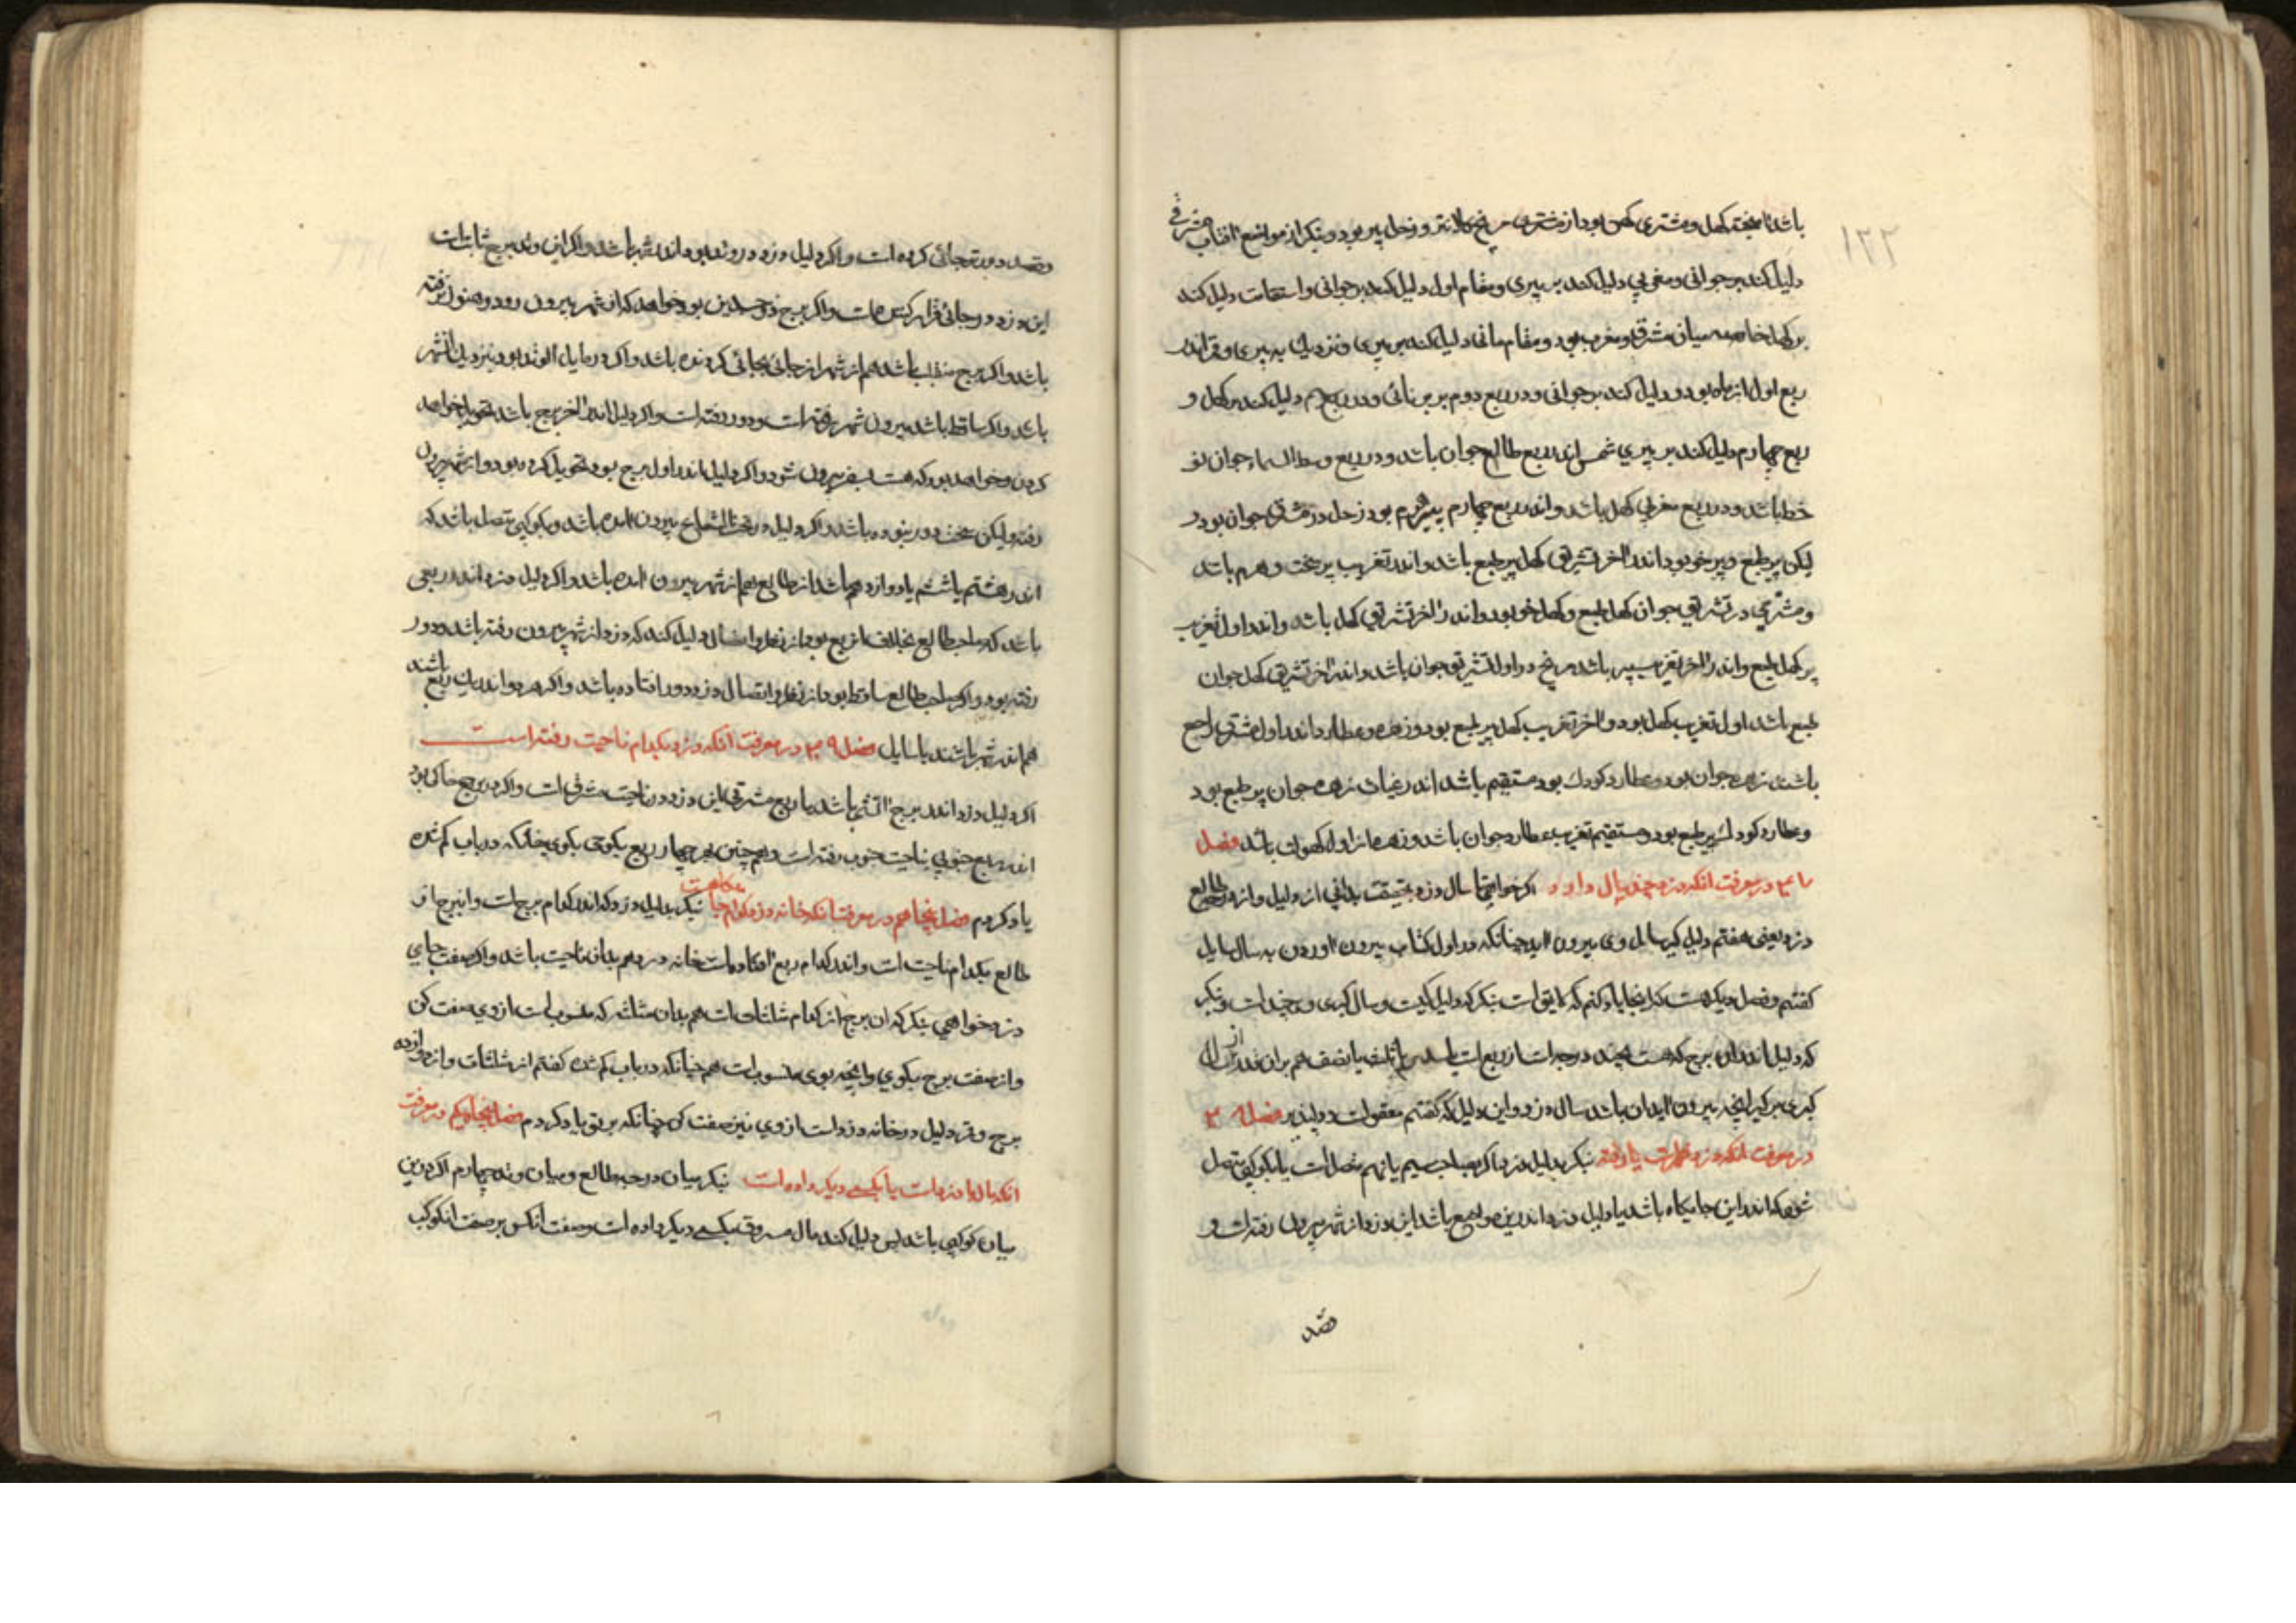 ۱۲۲
باشد تا نیمه کهل و مشتری کهن بود از مشتری مریخ کلانتر و زحل پیر بود و بنگر از مواضع آفتاب مشرقی
دلیل کند بر جوانی و مغربی دلیل کند بر پیری و مقام اول دلیل کند بر جوانی و استقامت دلیل کند
بر کهل خاصه میان مشرق و مغرب بود و مقام ثانی دلیل کند بر پیری و نزدیک به پیری و قر اندر
ربع اول از ماه بود و دلیل کند بر جوانی و در ربع دوم بر برنائی و در ربع سیم دلیل کند بر کهل و
ربع چهارم دلیل کند بر پیری شمس اندر ربع طالع جوان باشد و در ربع وسط السماء جوان نو
خط باشد و در ربع مغربی کهل باشد و اندر ربع چهارم پیر هرم بود زحل در مشرق جوان بود
لیکن پیر طبع و پیر خو بود اندر آخر تشریق کهل پیر طبع باشد و اندر تغریب پیر سخت و هرم باشد
و مشتری در تشریق جوان کهل طبع و کهل خو بود و اندر آخر تشریق کهل باشد و اندر اول تغریب
پیر کهل طبع و اندر آخر تغریب پیر باشد مریخ در اول تشریق جوان باشد و اندر آخر تشریق کهل جوان
طبع باشد اول تغریب کهل بود و آخر تغریب کهل پیر طبع بود و زهره و عطارد اندر اول مشرق راجع
باشند زهره جوان بود و عطارد کودک بود مستقیم باشد اندر غیاث زهره جوان پیر طبع بود
و عطارد کودک پیر طبع بود و مستقیم تغریب عطارد جوان باشد و زهره از اول کهولت باشد فصل
در معرفت انکه دزد چند سال دارد اگر خواهی تا سال دزد بحقیقت بدانی از دلیل و از درجه طالع
دزد یعنی هفتم دلیل گیر سال وی بیرون آید چنانکه در اول کتاب بیرون آوردن به سال سایل
گفتم و فصل دیگر هست که اینجا یاد کنم که لایق است بنگر که دلیل کیست و سال کبری وی چند است و بنگر
که دلیل اندر ان برج که هست بچند درجه است از ربع است یا سدس یا ثلث یا نصف هم بران قدر از سال
کبری برگیر آنچه بیرون آید ان باشد سال دزد و این دلیل که گفتم معقولست و دلپذیر فصل
در معرفت انکه دزد بشهرست یا رفته بنگر بدلیل دزد اگر بصاحب سیم یا نهم متصل است یا بکوکبی متصل
شود که اندر این جایگاه باشد یا دلیل دزد اندرین مواضع باشد این دزد از شهر بیرون رفته است و
قصد
و قصد دورتر جائی کرده است و اگر دلیل دزد در وتد بود اندر شهر باشد و اگر این وتد برج ثابت است
این دزد در جائی قرار کرفته است و اگر برج ذوجسدین بود خواهد که از شهر بیرون رود و هنوز نرفته
باشد و اگر برج منقلب باشد هم از شهر از جائی بجائی گردنده باشد و اگر در مایل الوتد بود نزدیک شهر
باشد و اگر ساقط باشد بیرون شهر رفته است و دور رفته است و اگر دلیل اندر آخر برج باشد تحویل خواهد
کردن و خواهد بود که هست بسفر بیرون شود و اگر دلیل اندر اول برج بود تحویل کرده بود و از شهر بیرون
رفته و لیکن سخت دور نبوده باشد و اگر دلیل در تحت الشعاع بیرون آمده باشد و بکوکبی متصل باشد که
اندر هشتم یا ششم یا دوازدهم باشد از طالع هم از شهر بیرون آمده باشد و اگر دلیل دزد اندر ربعی
باشد که صاحب طالع بخلاف ان ربع بود از نظر و اتصال دلیل کند که دزد از شهر بیرون رفته باشد و دور
رفته بود و اگر صاحب طالع ساقط بود از نظر و اتصال دزد دور افتاده باشد و اگر هر دو اندر یک ربع باشند
هم اندر شهر باشند با سایل فصل ۴۹ در معرفت آنکه دزد بکدام ناحیت رفته است
اگر دلیل دزد اندر برج آتشی باشد یا ربع مشرقی این دزد در ناحیت مشرق است و اگر در برج خاکی بود
اندر ربع جنوبی بناحیت جنوب رفته است و همچنین هر چهار ربع بگوی چنانکه در باب گم شده
یاد کردم فصل پنجاهم در معرفت آنکه خانه دزد بکدام جا بکجاست بنگر بدلیل دزد که اندر کدام برج است و ان برج از
طالع بکدام ناحیت است و اندر کدام ربع افتاده است خانه دزد هم بدان ناحیت باشد و اگر صفت جای
دزد خواهی بنگر که ان برج از کدام مثلثات است هم بدان مثلثه که منسوب است از وی صفت کن
و از صفت برج بگوی و آنچه بوی منسوب است همچنانکه در باب گم شده گفتم از مثلثات و از دوازده
برج و قر دلیل در خانه دزد است از وی نیز صفت کن چنانکه بر تو یاد کردم فصل پنجاه و یکم در معرفت
انکه مال با دزد است یا بکسی دیگر داده است بنگر میان درجه طالع و میان وتد چهارم اگر درین
میان کوکبی باشد پس دلیل کند مال مسروق بکسی دیگر داده است و صفت آنکس بر صفت آن کوکب